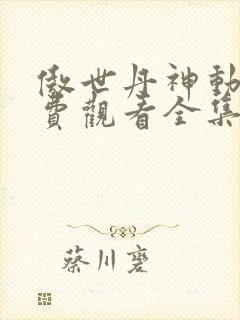 傲世丹神動
費觀看全集
蔡川褰